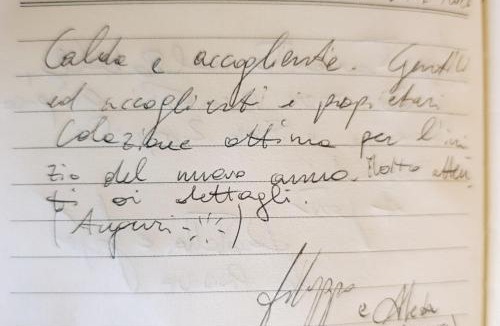 Calda e accogliente. Gentili
ed accoglienti i proprietari
Colazione ottima per l'ini
zio del nuovo anno. Molto atten
ti ai dettagli.
(Auguri)
Filippo
e